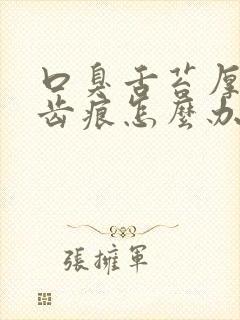 口臭舌苔厚
齿痕怎麽办
張擁軍